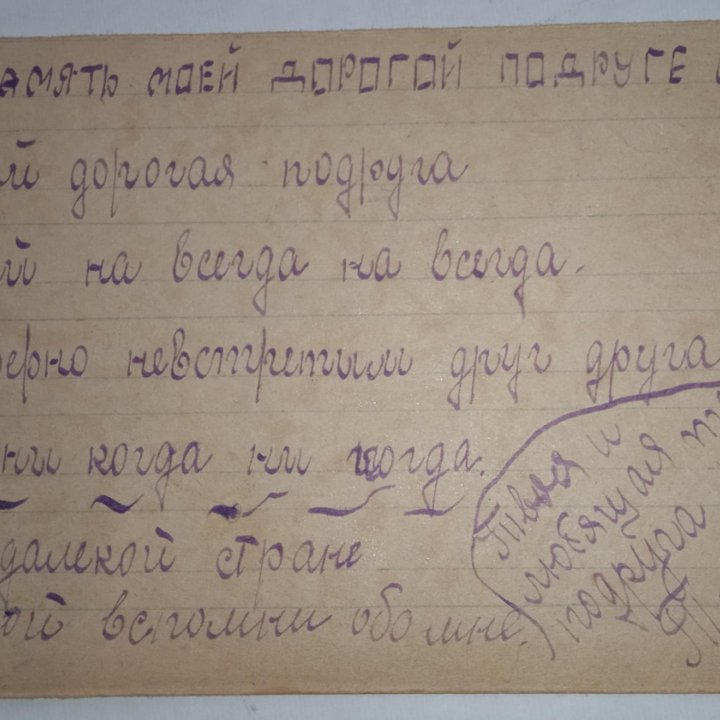 АМЯТЬ МОЕЙ ДОРОГОЙ ПОДРУГЕ
дорогая подруга
на всегда на всегда.
ерно невстретим друг друга
ни когда ни когда.
далекой стране
ой вспомни обо мне.
Твая и
любящая
подруга